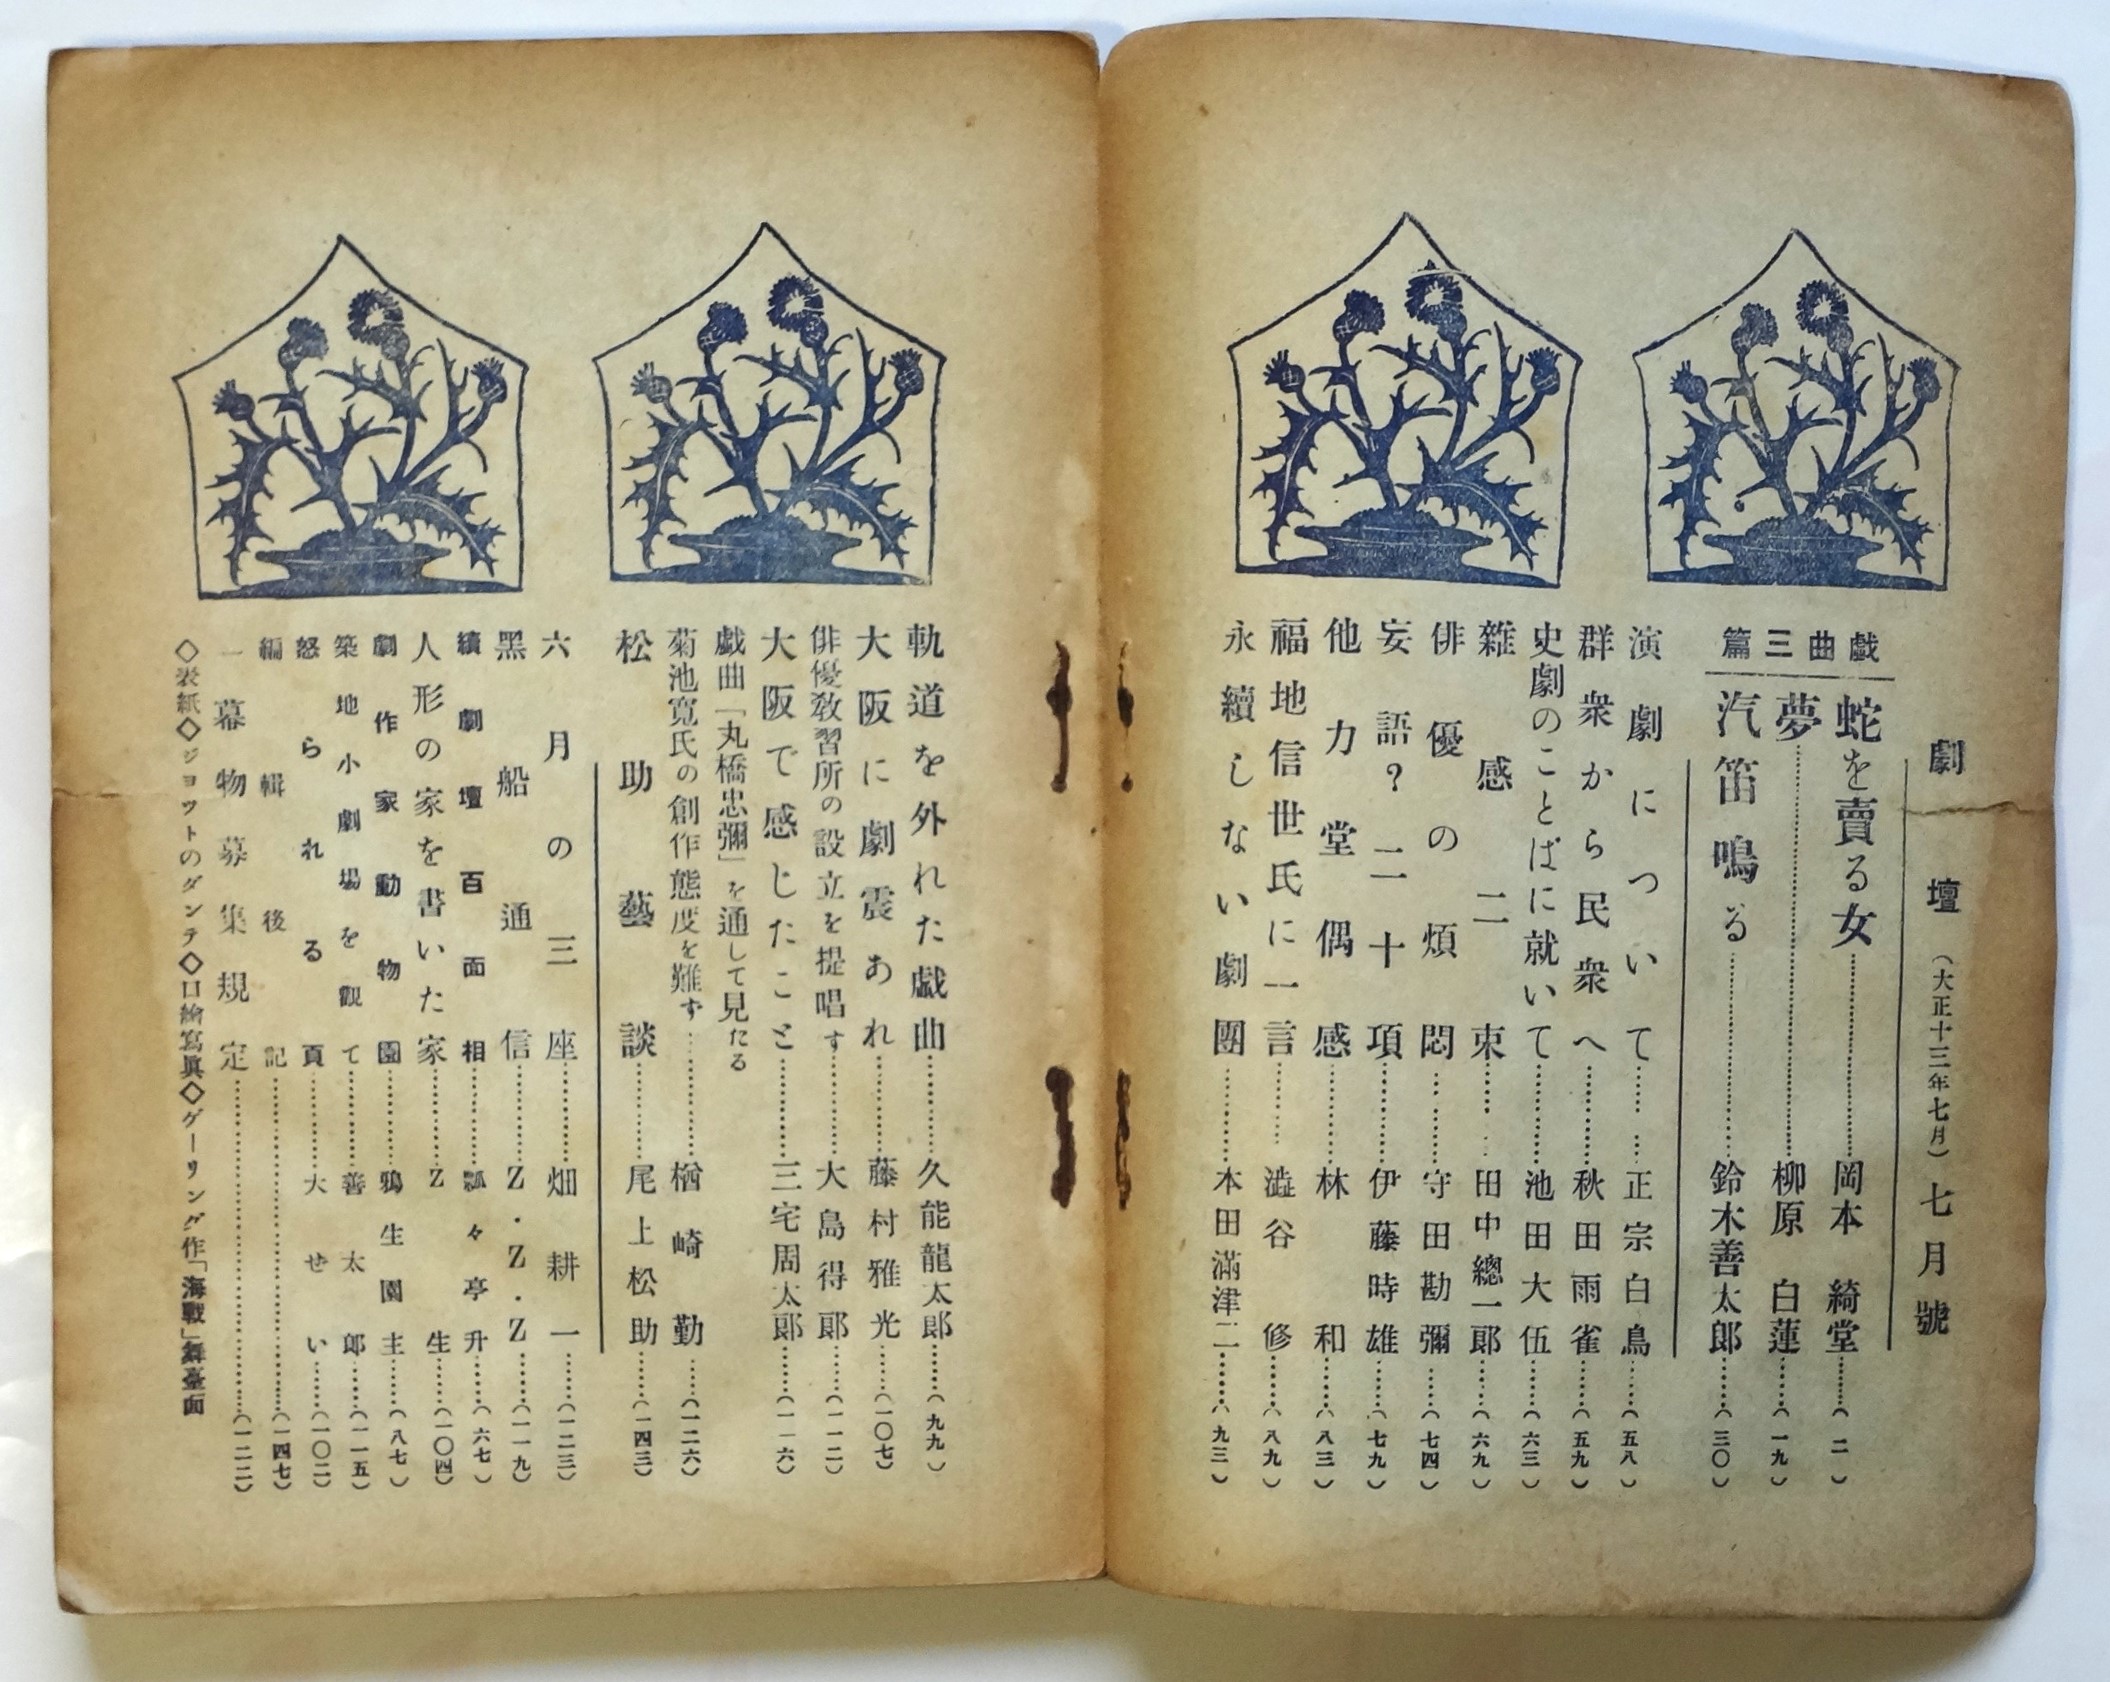 劇壇（大正十三年七月）七月號
戯曲三篇
蛇を賣る女…………岡本綺堂……（二）
夢…………柳原白蓮……（一九）
汽笛鳴る…………鈴木善太郎……（三〇）
演劇について…………正宗白鳥……（五八）
群衆から民衆へ…………秋田雨雀……（五九）
史劇のことばに就いて…………池田大伍……（六三）
雜感二束…………田中總一郎……（六九）
俳優の煩悶…………守田勘彌……（七四）
妄語？二十項…………伊藤時雄……（七九）
他力堂偶感…………林和……（八三）
福地信世氏に一言…………澁谷修……（八九）
永續しない劇團…………本田滿津二……（九三）
軌道を外れた戯曲…………久能龍太郎……（九九）
大阪に劇震あれ…………藤村雅光……（一〇七）
俳優敎習所の設立を提唱す…………大島得郎……（一一二）
大阪で感じたこと…………三宅周太郎……（一一六）
戯曲「丸橋忠彌」を通して見たる
菊池寬氏の創作態度を難ず…………楢崎勤……（一二六）
松助藝談…………尾上松助……（一四三）
六月の三座…………畑耕一……（一二三）
黑船通信…………Z・Z・Z……（一一九）
續劇壇百面相…………瓢々亭升……（六七）
人形の家を書いた家…………Z生……（一〇四）
劇作家動物園…………鴉生園主……（八七）
築地小劇場を觀て…………善太郎……（一一五）
怒られる頁…………大せい……（一〇二）
編輯後記…………（一四七）
一幕物募集規定…………（一二二）
◇表紙◇ジヨツトのダンテ◇口繪寫眞◇ゲーリング作「海戰」舞臺面